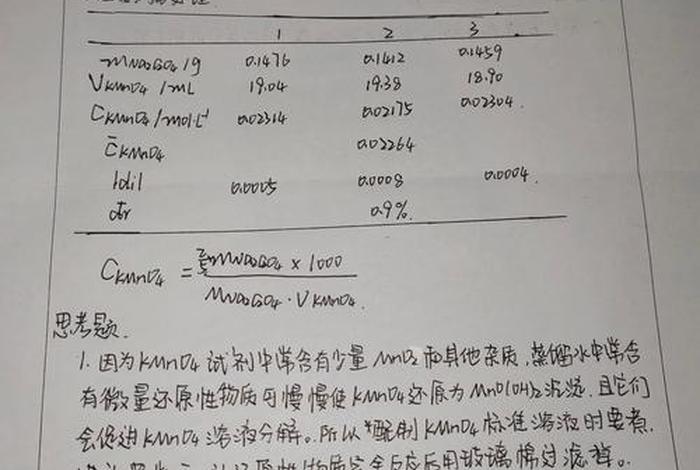 1 2 3
mNa2C2O4/g 0.1476 0.1412 0.1459
VKMnO4/mL 19.04 19.38 18.90
CKMnO4/mol·L⁻¹ 0.02314 0.02175 0.02304.
C̄KMnO4 0.02264
|di| 0.0005 0.0008 0.0004.
d̄r 0.9%.
CKMnO4 = 2/5 mNa2C2O4 × 1000 / MNa2C2O4 · VKMnO4.
思考题.
1. 因为KMnO4试剂中常含有少量MnO2和其他杂质,蒸馏水中常含
有微量还原性物质可慢慢使KMnO4还原为MnO(OH)2沉淀,且它们
会促进KMnO4溶液分解。所以配制KMnO4标准溶液时要煮,
还原性物质完全反应后用玻璃棉过滤掉。